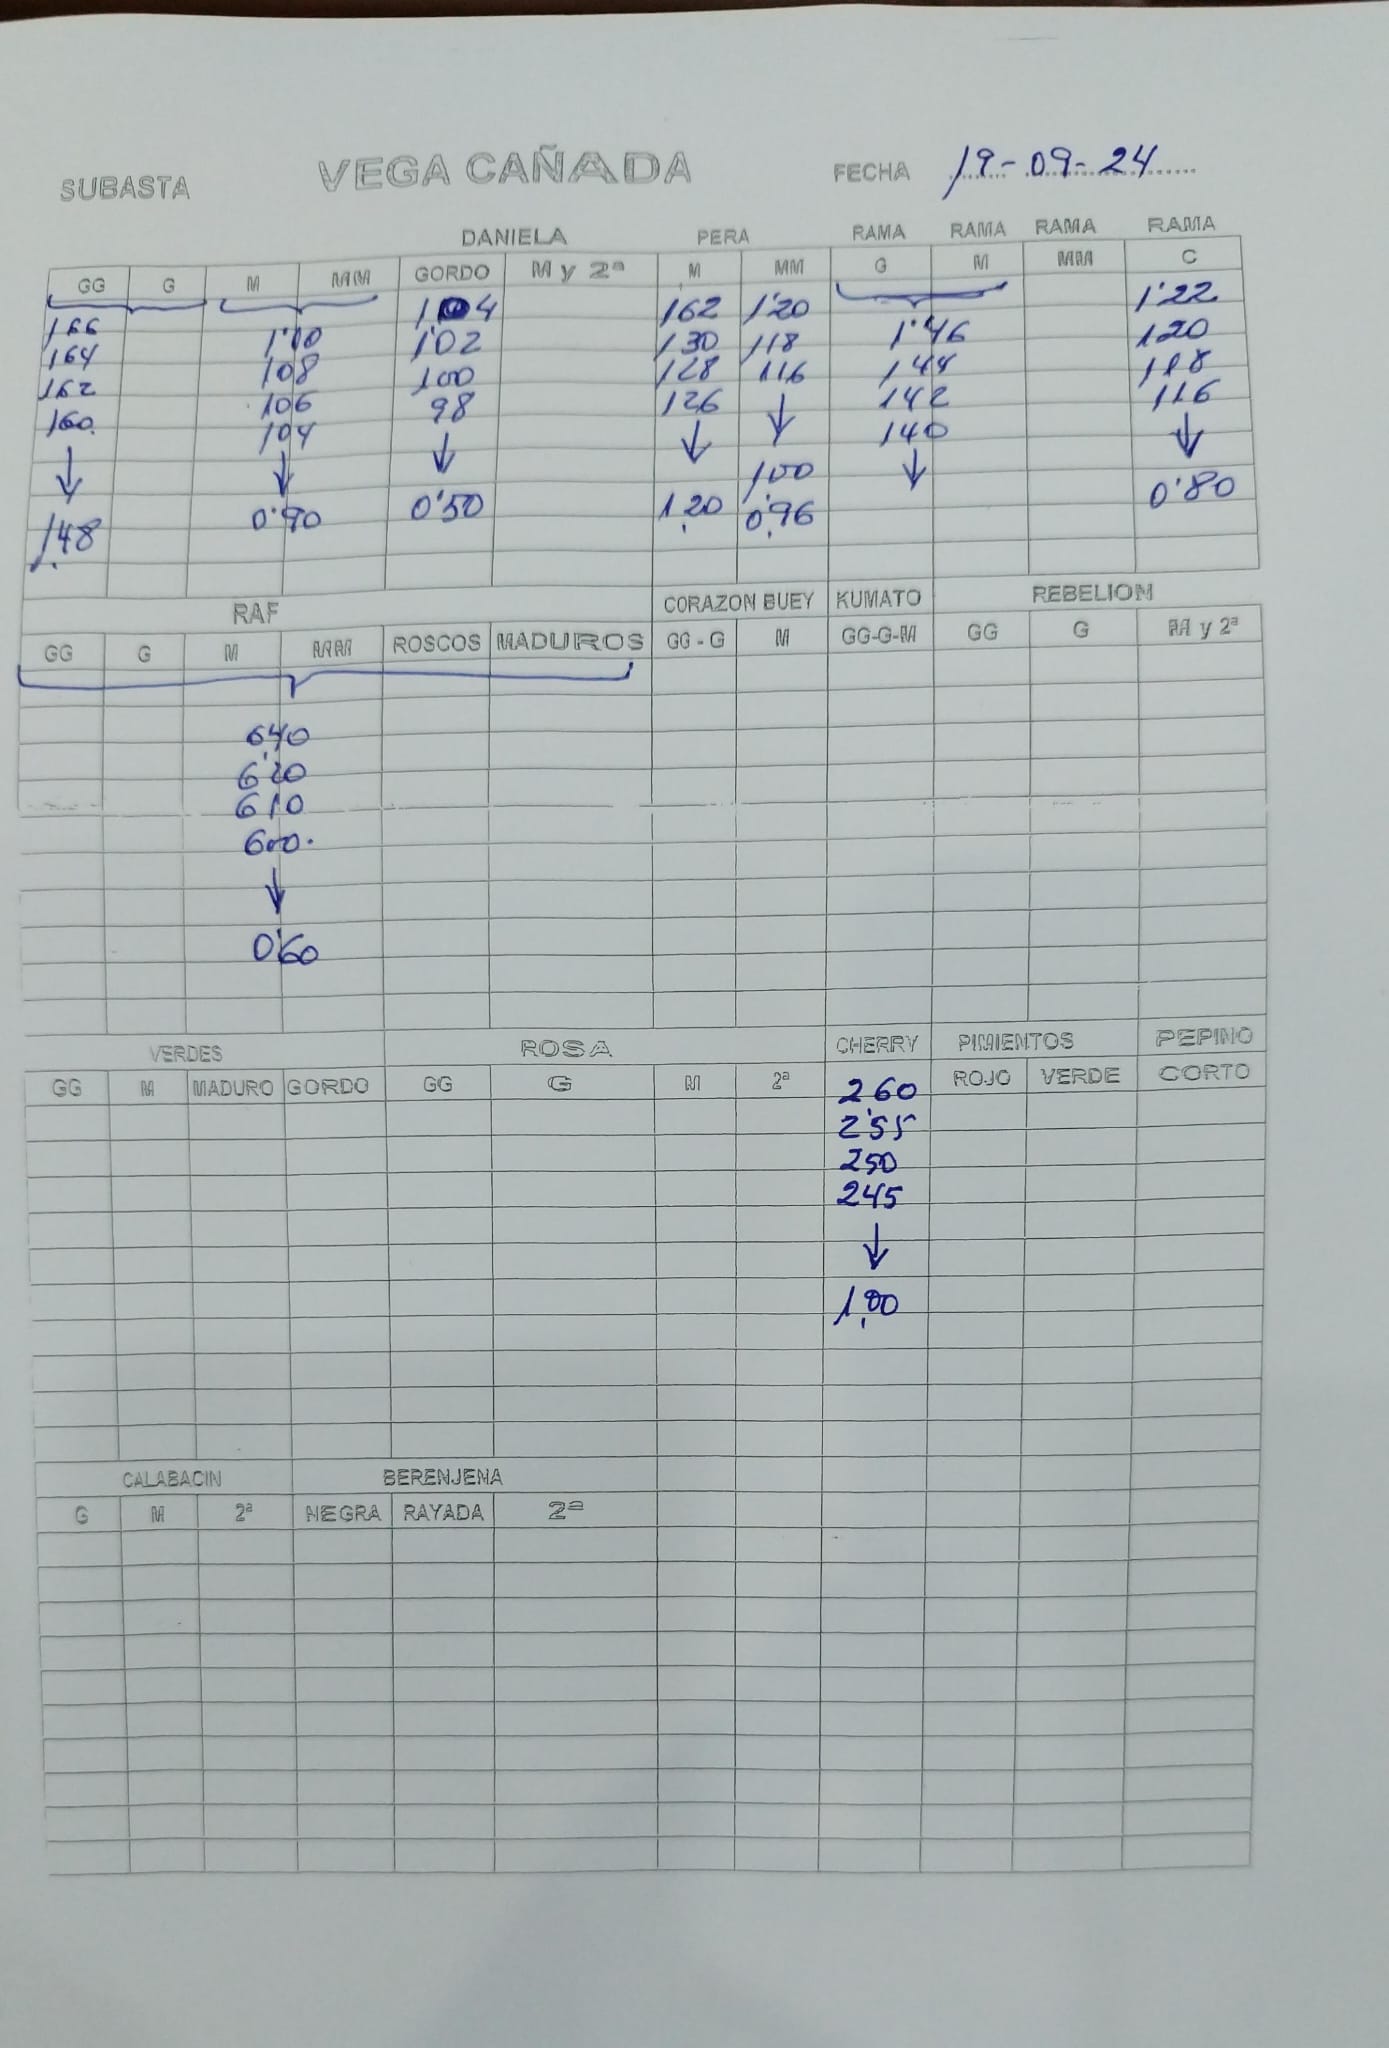 SUBASTA VEGA CAÑADA FECHA 19-09-24
DANIELA PERA RAMA RAMA RAMA RAMA
GG G M MM GORDO M y 2ª M MM G M MM C
104 162 1'20 1'22
166 1'10 1'02 130 118 1'46 120
164 108 100 128 116 144 118
162 106 98 126 142 116
160 104 140
100
148 0'90 0'50 1,20 0,96 0'80
RAF CORAZON BUEY KUMATO REBELION
GG G M MM ROSCOS MADUROS GG - G M GG-G-M GG G M y 2ª
640
6'20
610
600
0'60
VERDES ROSA CHERRY PIMIENTOS PEPINO
GG M MADURO GORDO GG G M 2ª ROJO VERDE CORTO
260
2'55
250
245
1,00
CALABACIN BERENJENA
G M 2ª NEGRA RAYADA 2ª